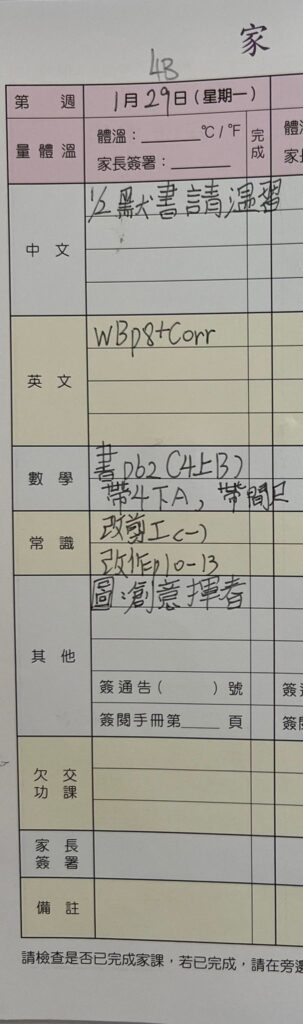 家
4B
第 週 1月29日(星期一)
量體溫 體溫：______℃/℉ 完成 體溫
家長簽署：______ 家長
中文 1/2默書請溫習
英文 WBp8+Corr
數學 書p62(4上B)
帶4下A，帶間尺
常識 改剪工(一)
改作p10-13
其他 圖:創意揮者
簽通告( )號 簽通
簽閱手冊第____頁 簽閱
欠交功課
家長簽署
備註
請檢查是否已完成家課，若已完成，請在旁邊